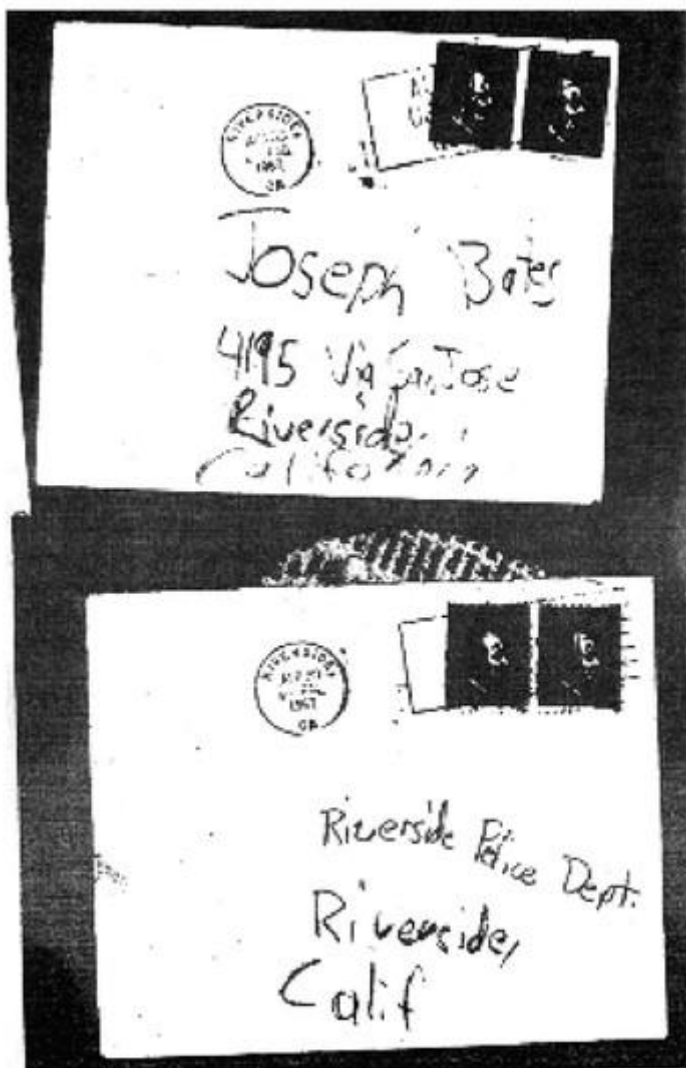 RIVERSIDE
1967
CA
Joseph Bates
4195 Via San Jose
Riverside,
California
RIVERSIDE
1967
CA
Riverside Police Dept.
Riverside,
Calif